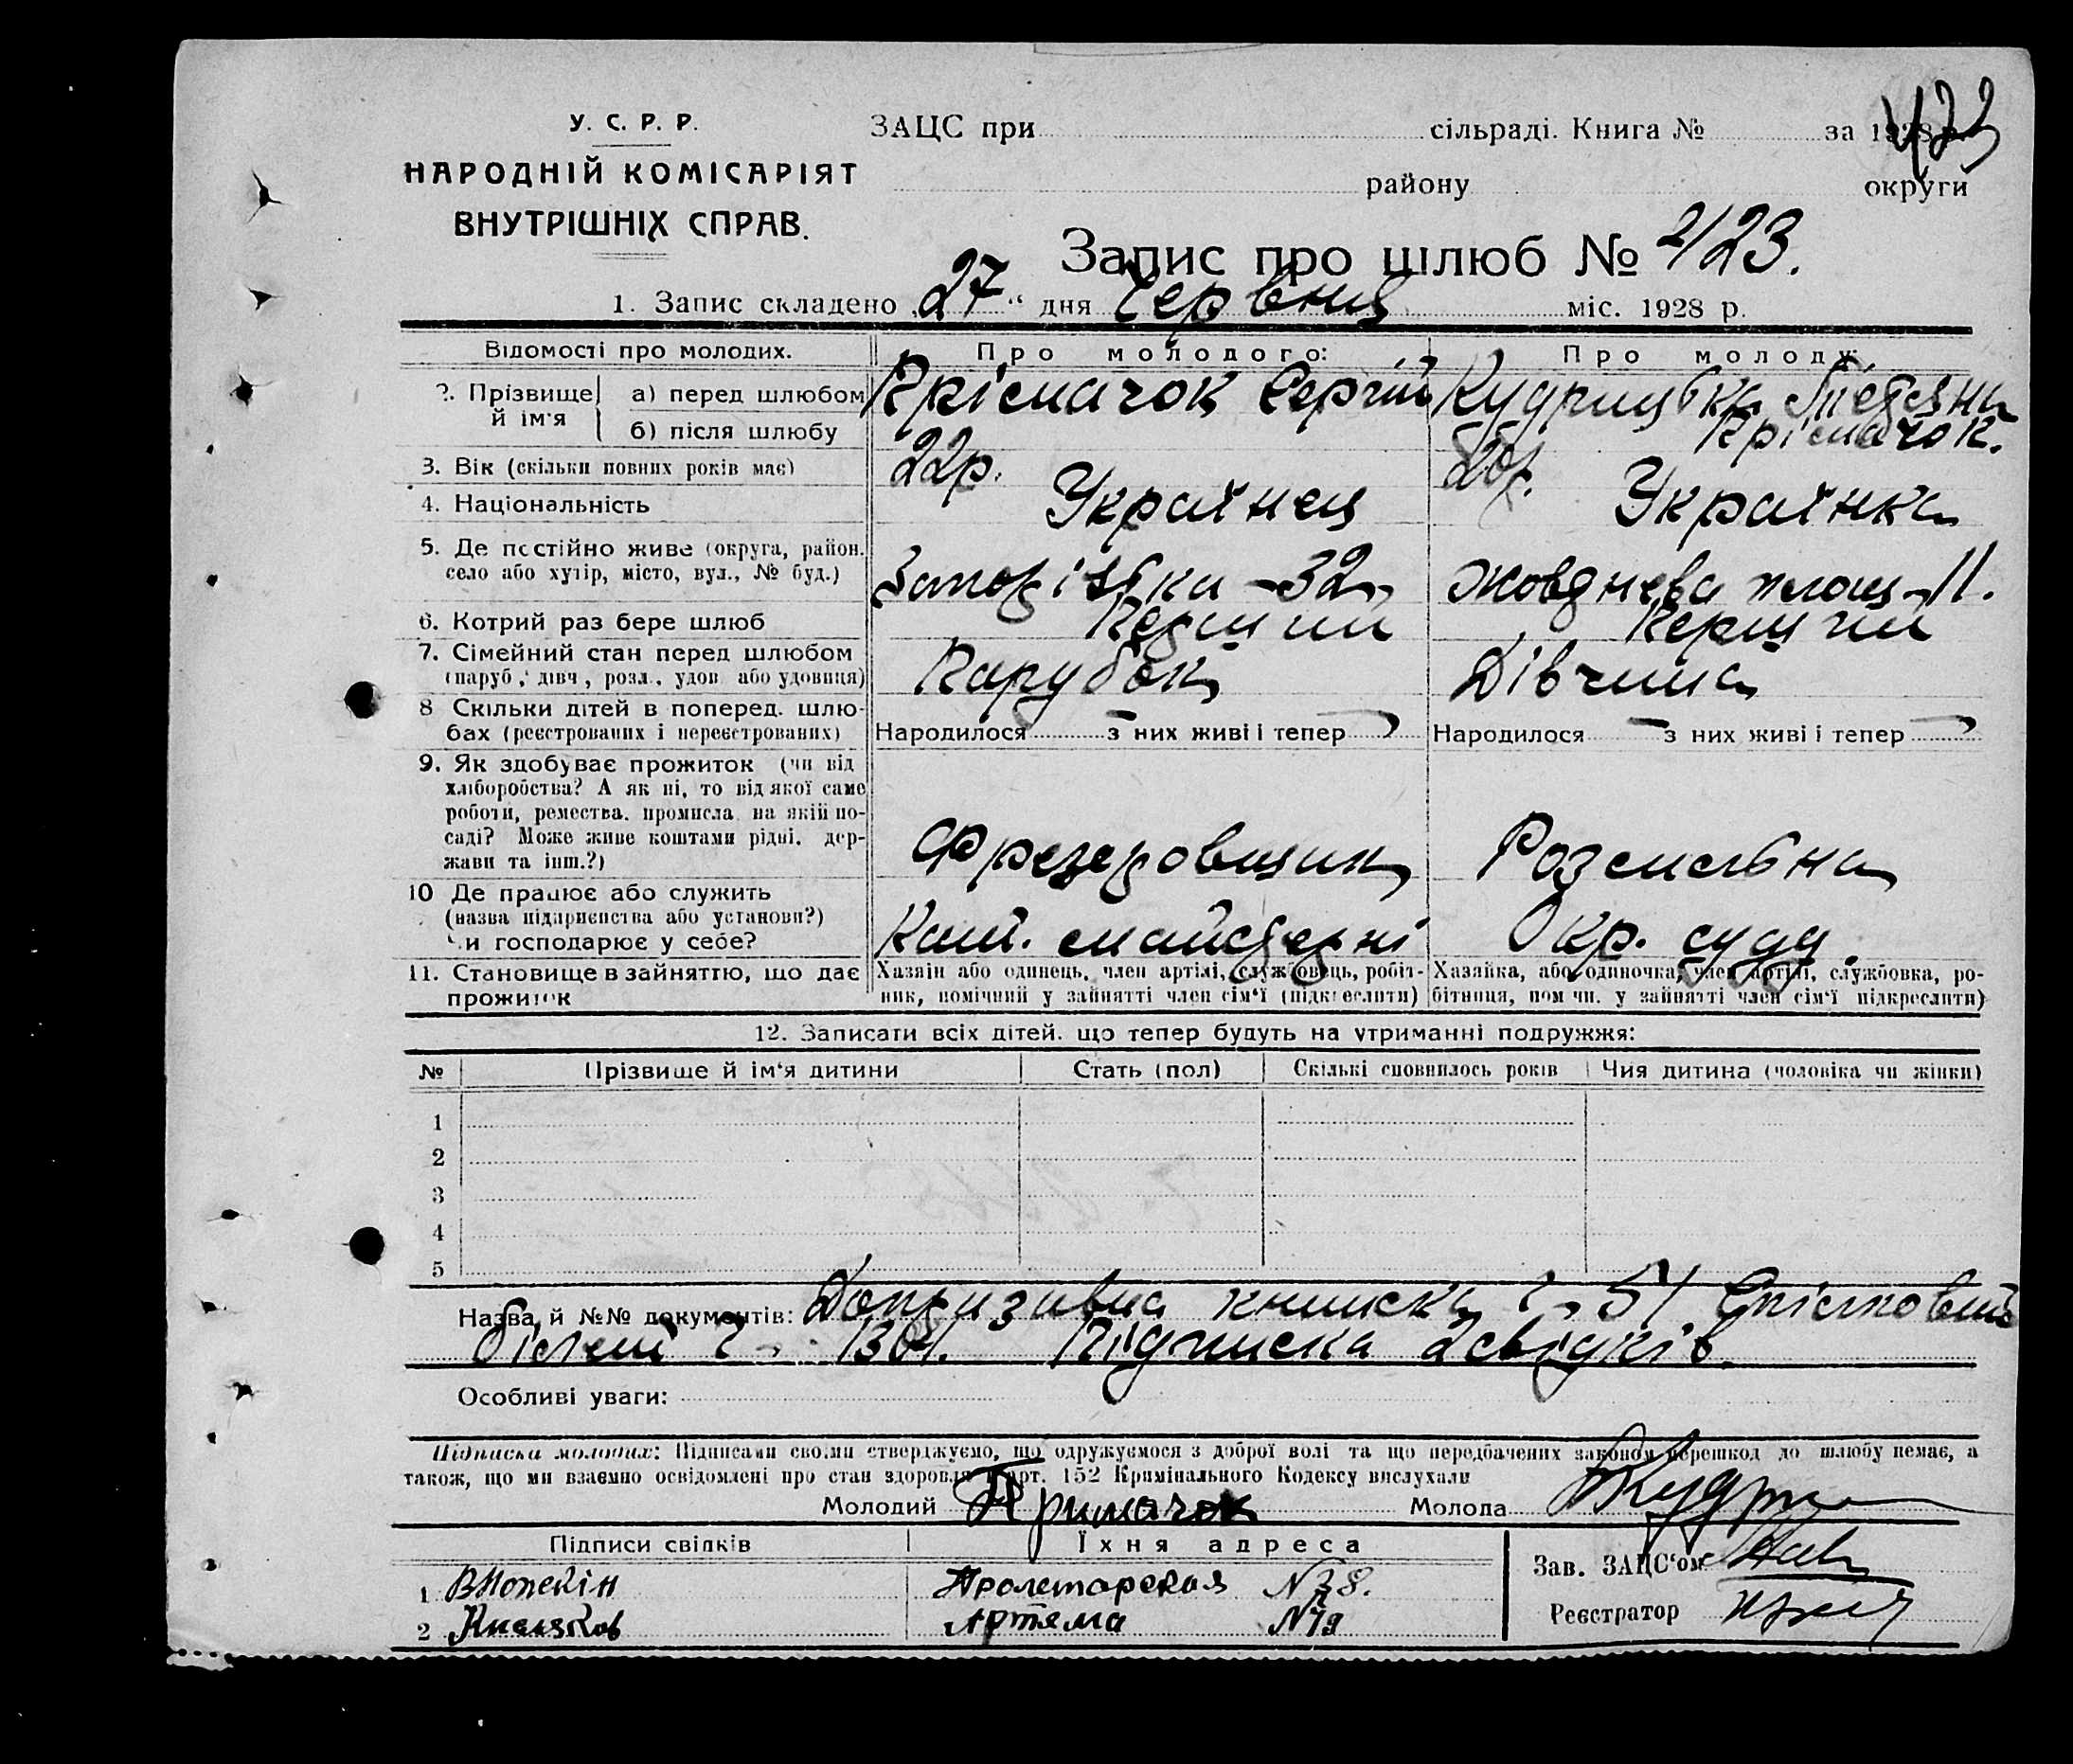 423
У. С. Р. Р.
НАРОДНІЙ КОМІСАРІЯТ
ВНУТРІШНІХ СПРАВ.
ЗАЦС при сільраді. Книга № за 1928 р.
району округи
Запис про шлюб № 423.
1. Запис складено „27“ дня Червня міс. 1928 р.
Відомості про молодих.
Про молодого:
Про молоду:
2. Прізвище й ім'я
а) перед шлюбом
Прісмачок Сергій
б) після шлюбу
Прісмачок.
3. Вік (скільки повних років має)
22р.
20р.
4. Національність
Українец
Українка
5. Де постійно живе (округа, район,
село або хутір, місто, вул., № буд.)
Запорізька - 32
Жовтнева площ - 11.
6. Котрий раз бере шлюб
Перший
Перший
7. Сімейний стан перед шлюбом
(паруб., дівч., розл., удов. або удовиця)
Парубок
Дівчина
8 Скільки дітей в поперед. шлю-
бах (реєстрованих і нереєстрованих)
Народилося — з них живі і тепер
Народилося — з них живі і тепер
9. Як здобуває прожиток (чи від
хліборобства? А як ні, то від якої саме
роботи, ремества, промисла, на якій по-
саді? Може живе коштами рідні, дер-
жави та інш.?)
Фрезеровщик
Розсильна
10 Де працює або служить
(назва підприємства або установи?)
Чи господарює у себе?
майстерні
Окр. суду
11. Становище в зайняттю, що дає
прожиток
Хазяїн або одинець, член артілі, службовець, робіт-
ник, помічний у зайнятті член сім'ї (підкреслити)
Хазяйка, або одиночка, член артілі, службовка, ро-
бітниця, помічн. у зайнятті член сім'ї підкреслити)
12. Записати всіх дітей, що тепер будуть на утриманні подружжя:
№ Прізвище й ім'я дитини Стать (пол) Скількі сповнилось років Чия дитина (чоловіка чи жінки)
1
2
3
4
5
Назва й №№ документів: Допризивна книжка ч. 51
білет ч. 1301. Підписка 2 свідків.
Особливі уваги:
Підписка молодих: Підписами своїми стверджуємо, що одружуємося з доброї волі та що передбачених законом перешкод до шлюбу немає, а
також, що ми взаємно освідомлені про стан здоровля й арт. 152 Кримінального Кодексу вислухали
Молодий Примачок Молода
Підписи свідків
Їхня адреса
Зав. ЗАЦС'ом
1 Пролетарская N 38.
Реєстратор
2 Артема N 19